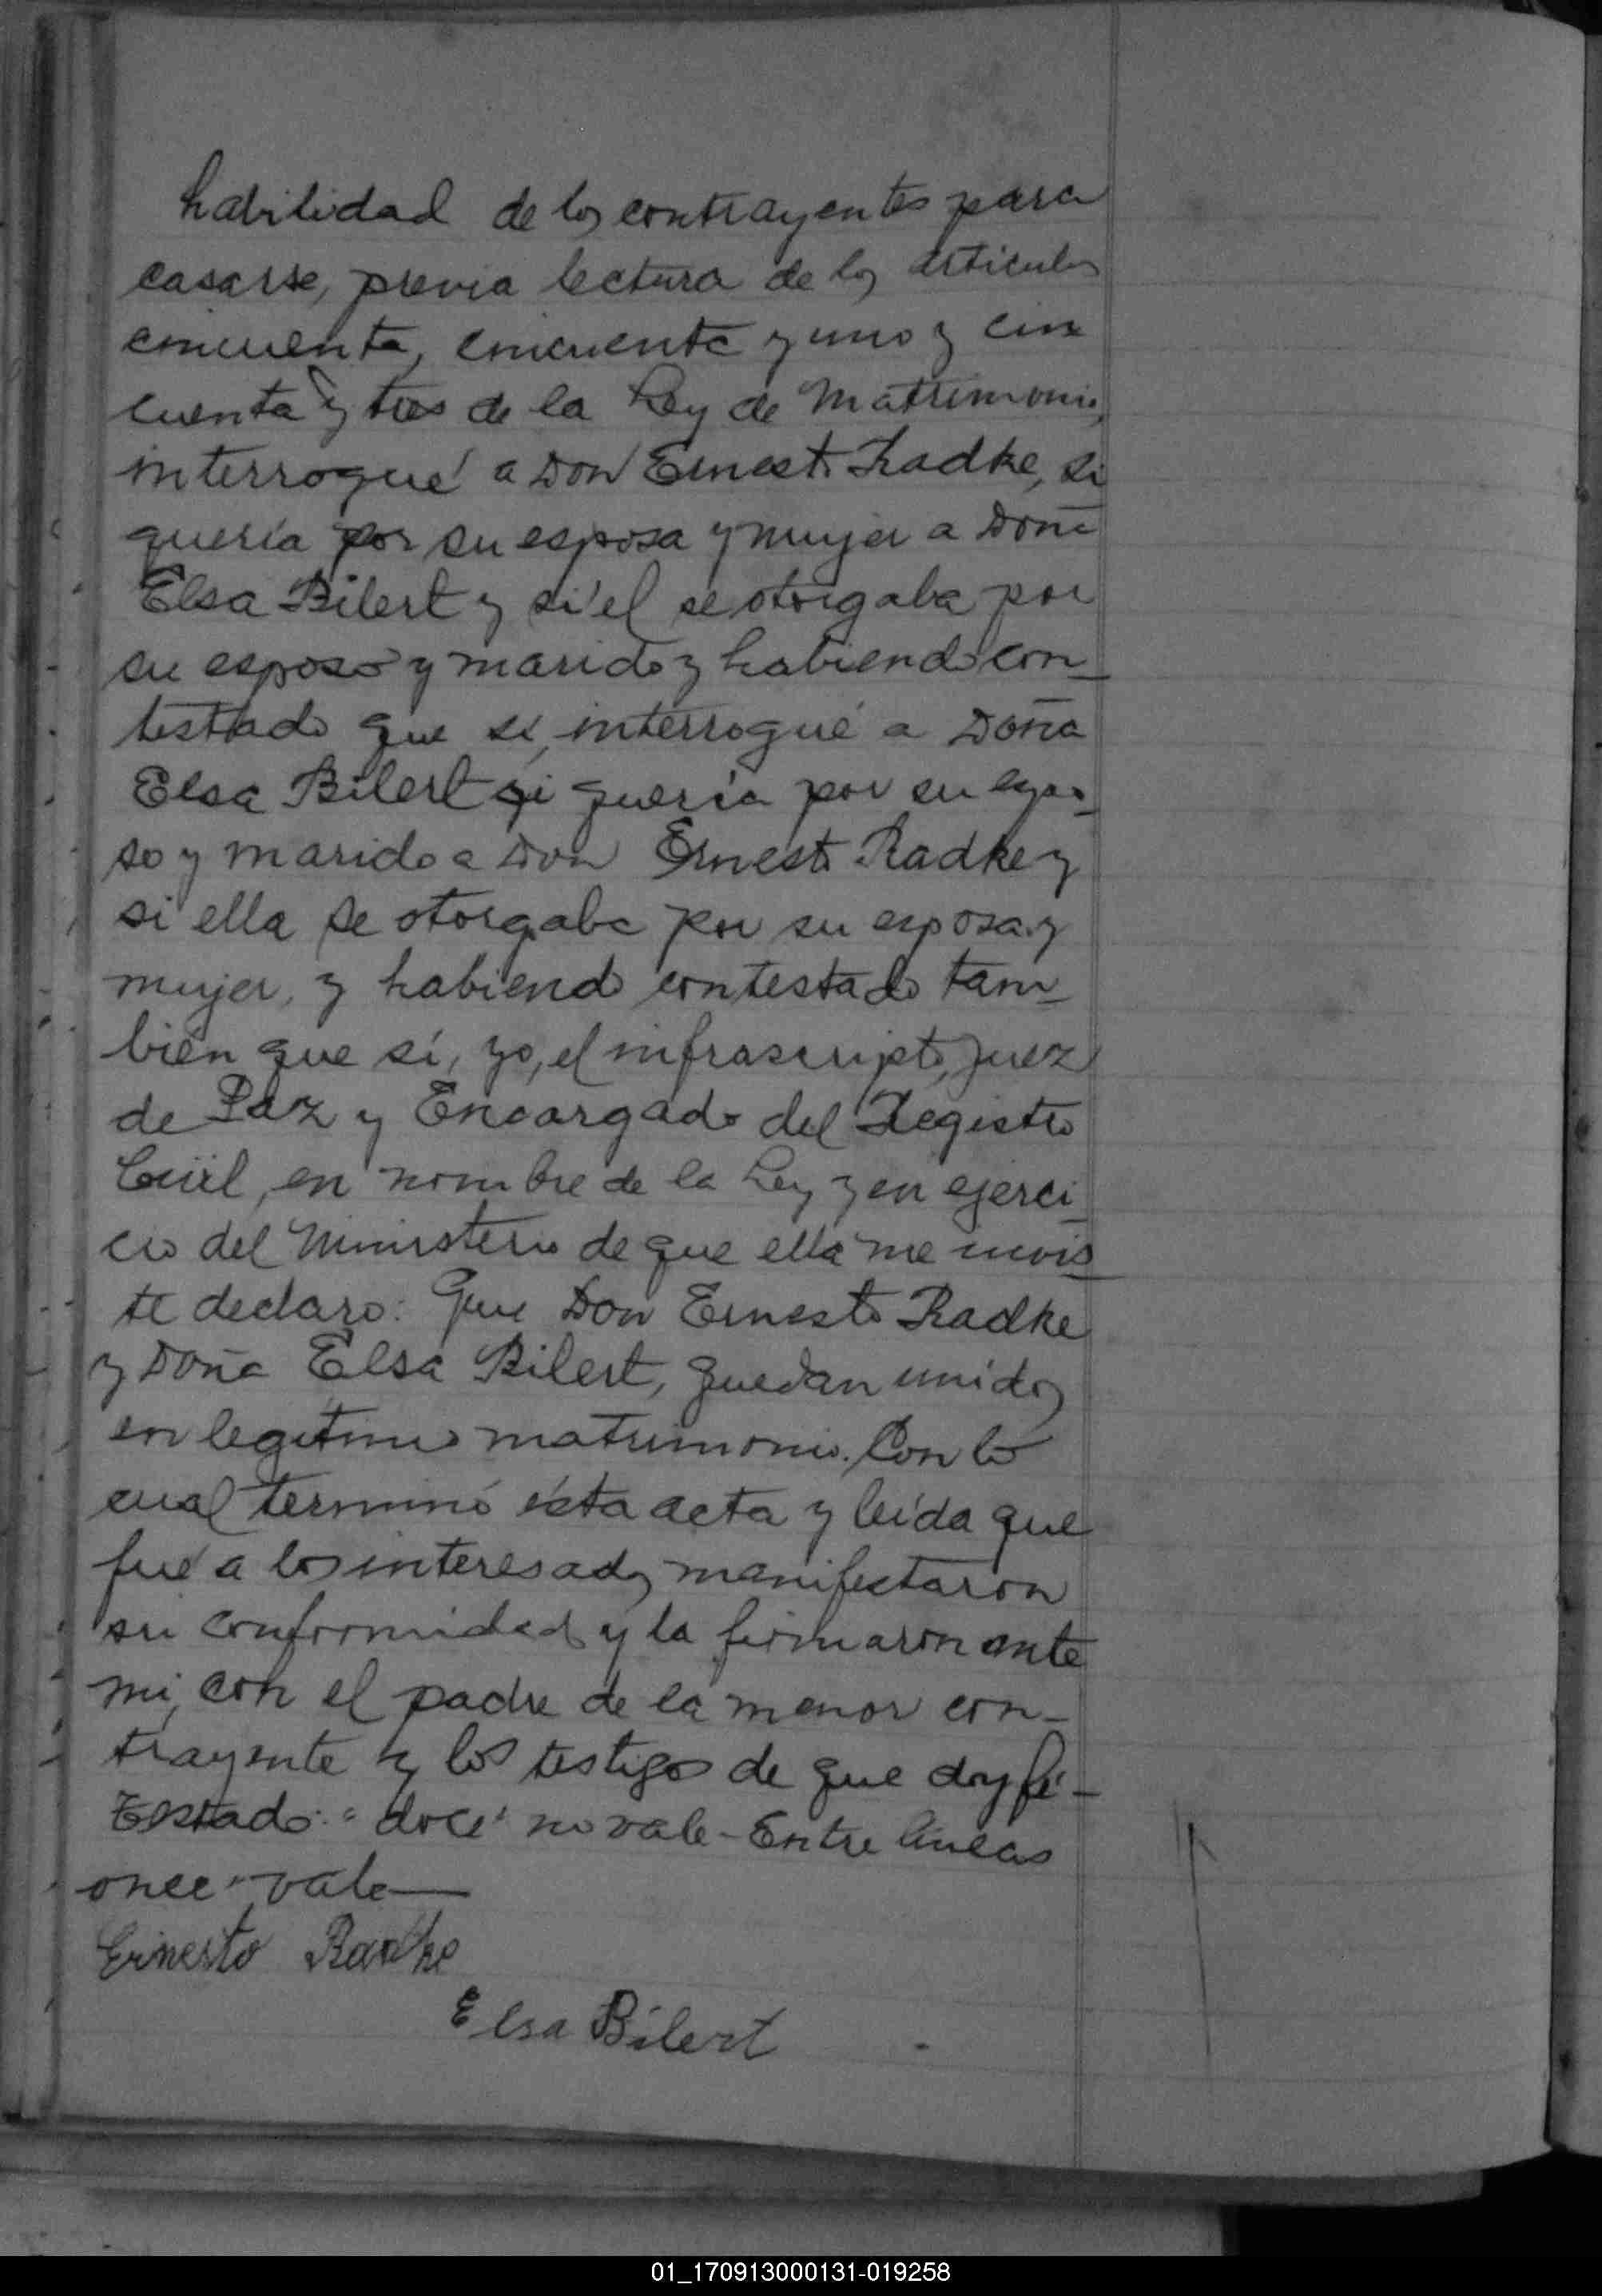 habilidad de los contrayentes para
casarse, previa lectura de los articulos
cincuenta, cincuenta y uno y cin
cuenta y tres de la Ley de Matrimonio,
interrogué a Don Ernesto Radke, si
quería por su esposa y mujer a Doña
Elsa Bilert y si él se otorgaba por
su esposo y marido y habiendo con_
testado que si, interrogué a Doña
Elsa Bilert si quería por su espo_
so y marido a Don Ernesto Radke y
si ella se otorgaba por su esposa y
mujer, y habiendo contestado tam_
bién que sí, yo, el infrascripto, Juez
de Paz y Encargado del Registro
Civil, en nombre de la Ley y en ejerci_
cio del Ministerio de que ella me invis_
te declaro: Que Don Ernesto Radke
y Doña Elsa Bilert, quedan unidos
en legitimo matrimonio. Con lo
cual terminó ésta acta y leída que
fué a los interesados manifestaron
su conformidad y la firmaron ante
mi, con el padre de la menor con_
trayente y los testigos de que doy fé_
Testado: "doce" no vale - Entre líneas
once" vale
Ernesto Radke
Elsa Bilert
01_170913000131-019258